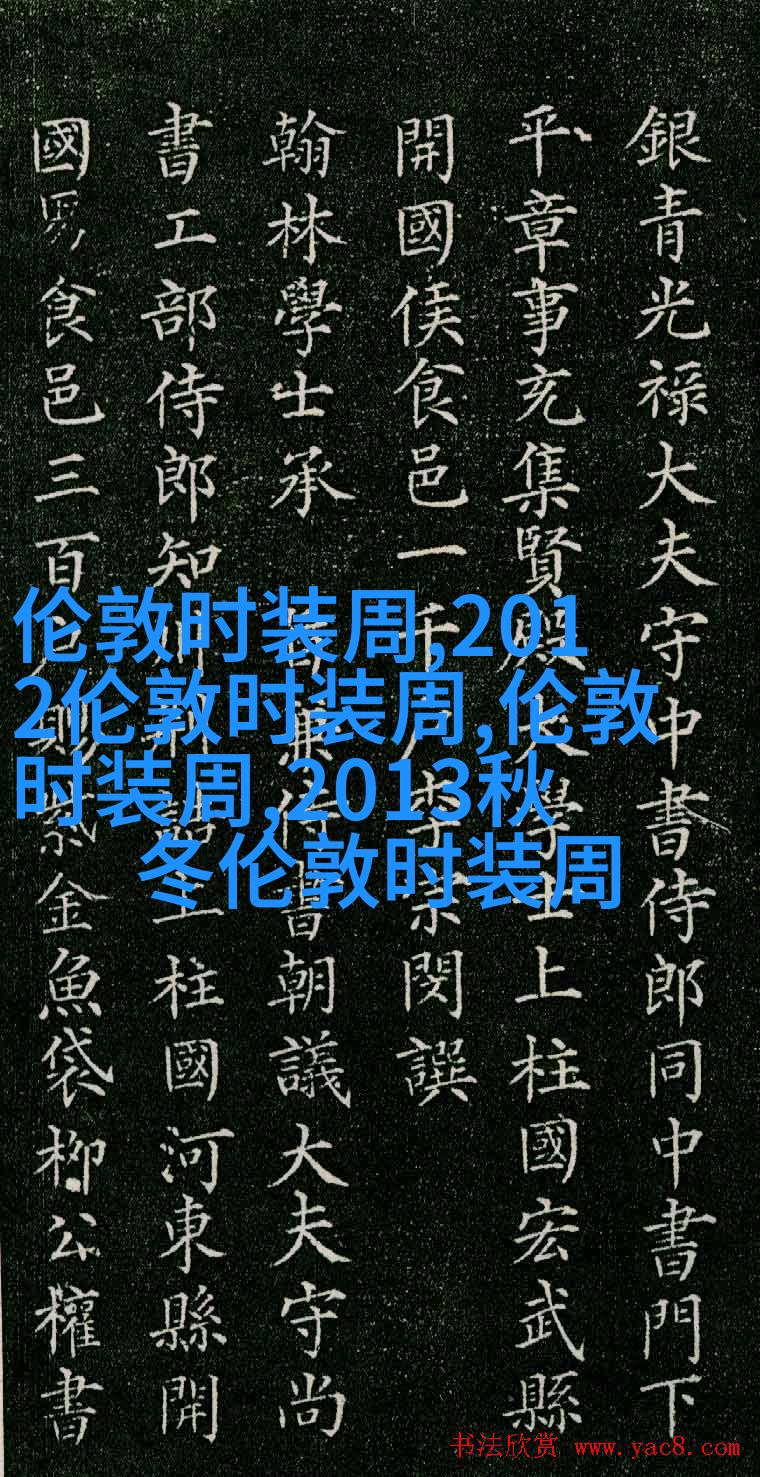 銀青光禄大夫守中書侍郎同中書門下
平章事充集賢殿大學士上柱國宏武縣
開國侯食邑一千户李宗閔撰
翰林學士承旨兼侍書朝議大夫守尚
書工部侍郎知制誥上柱國河東縣開
國男食邑三百户賜紫金魚袋柳公權書
伦敦时装周,201
2伦敦时装周,伦敦
时装周,2013秋
冬伦敦时装周
书法欣赏 www.yac8.com